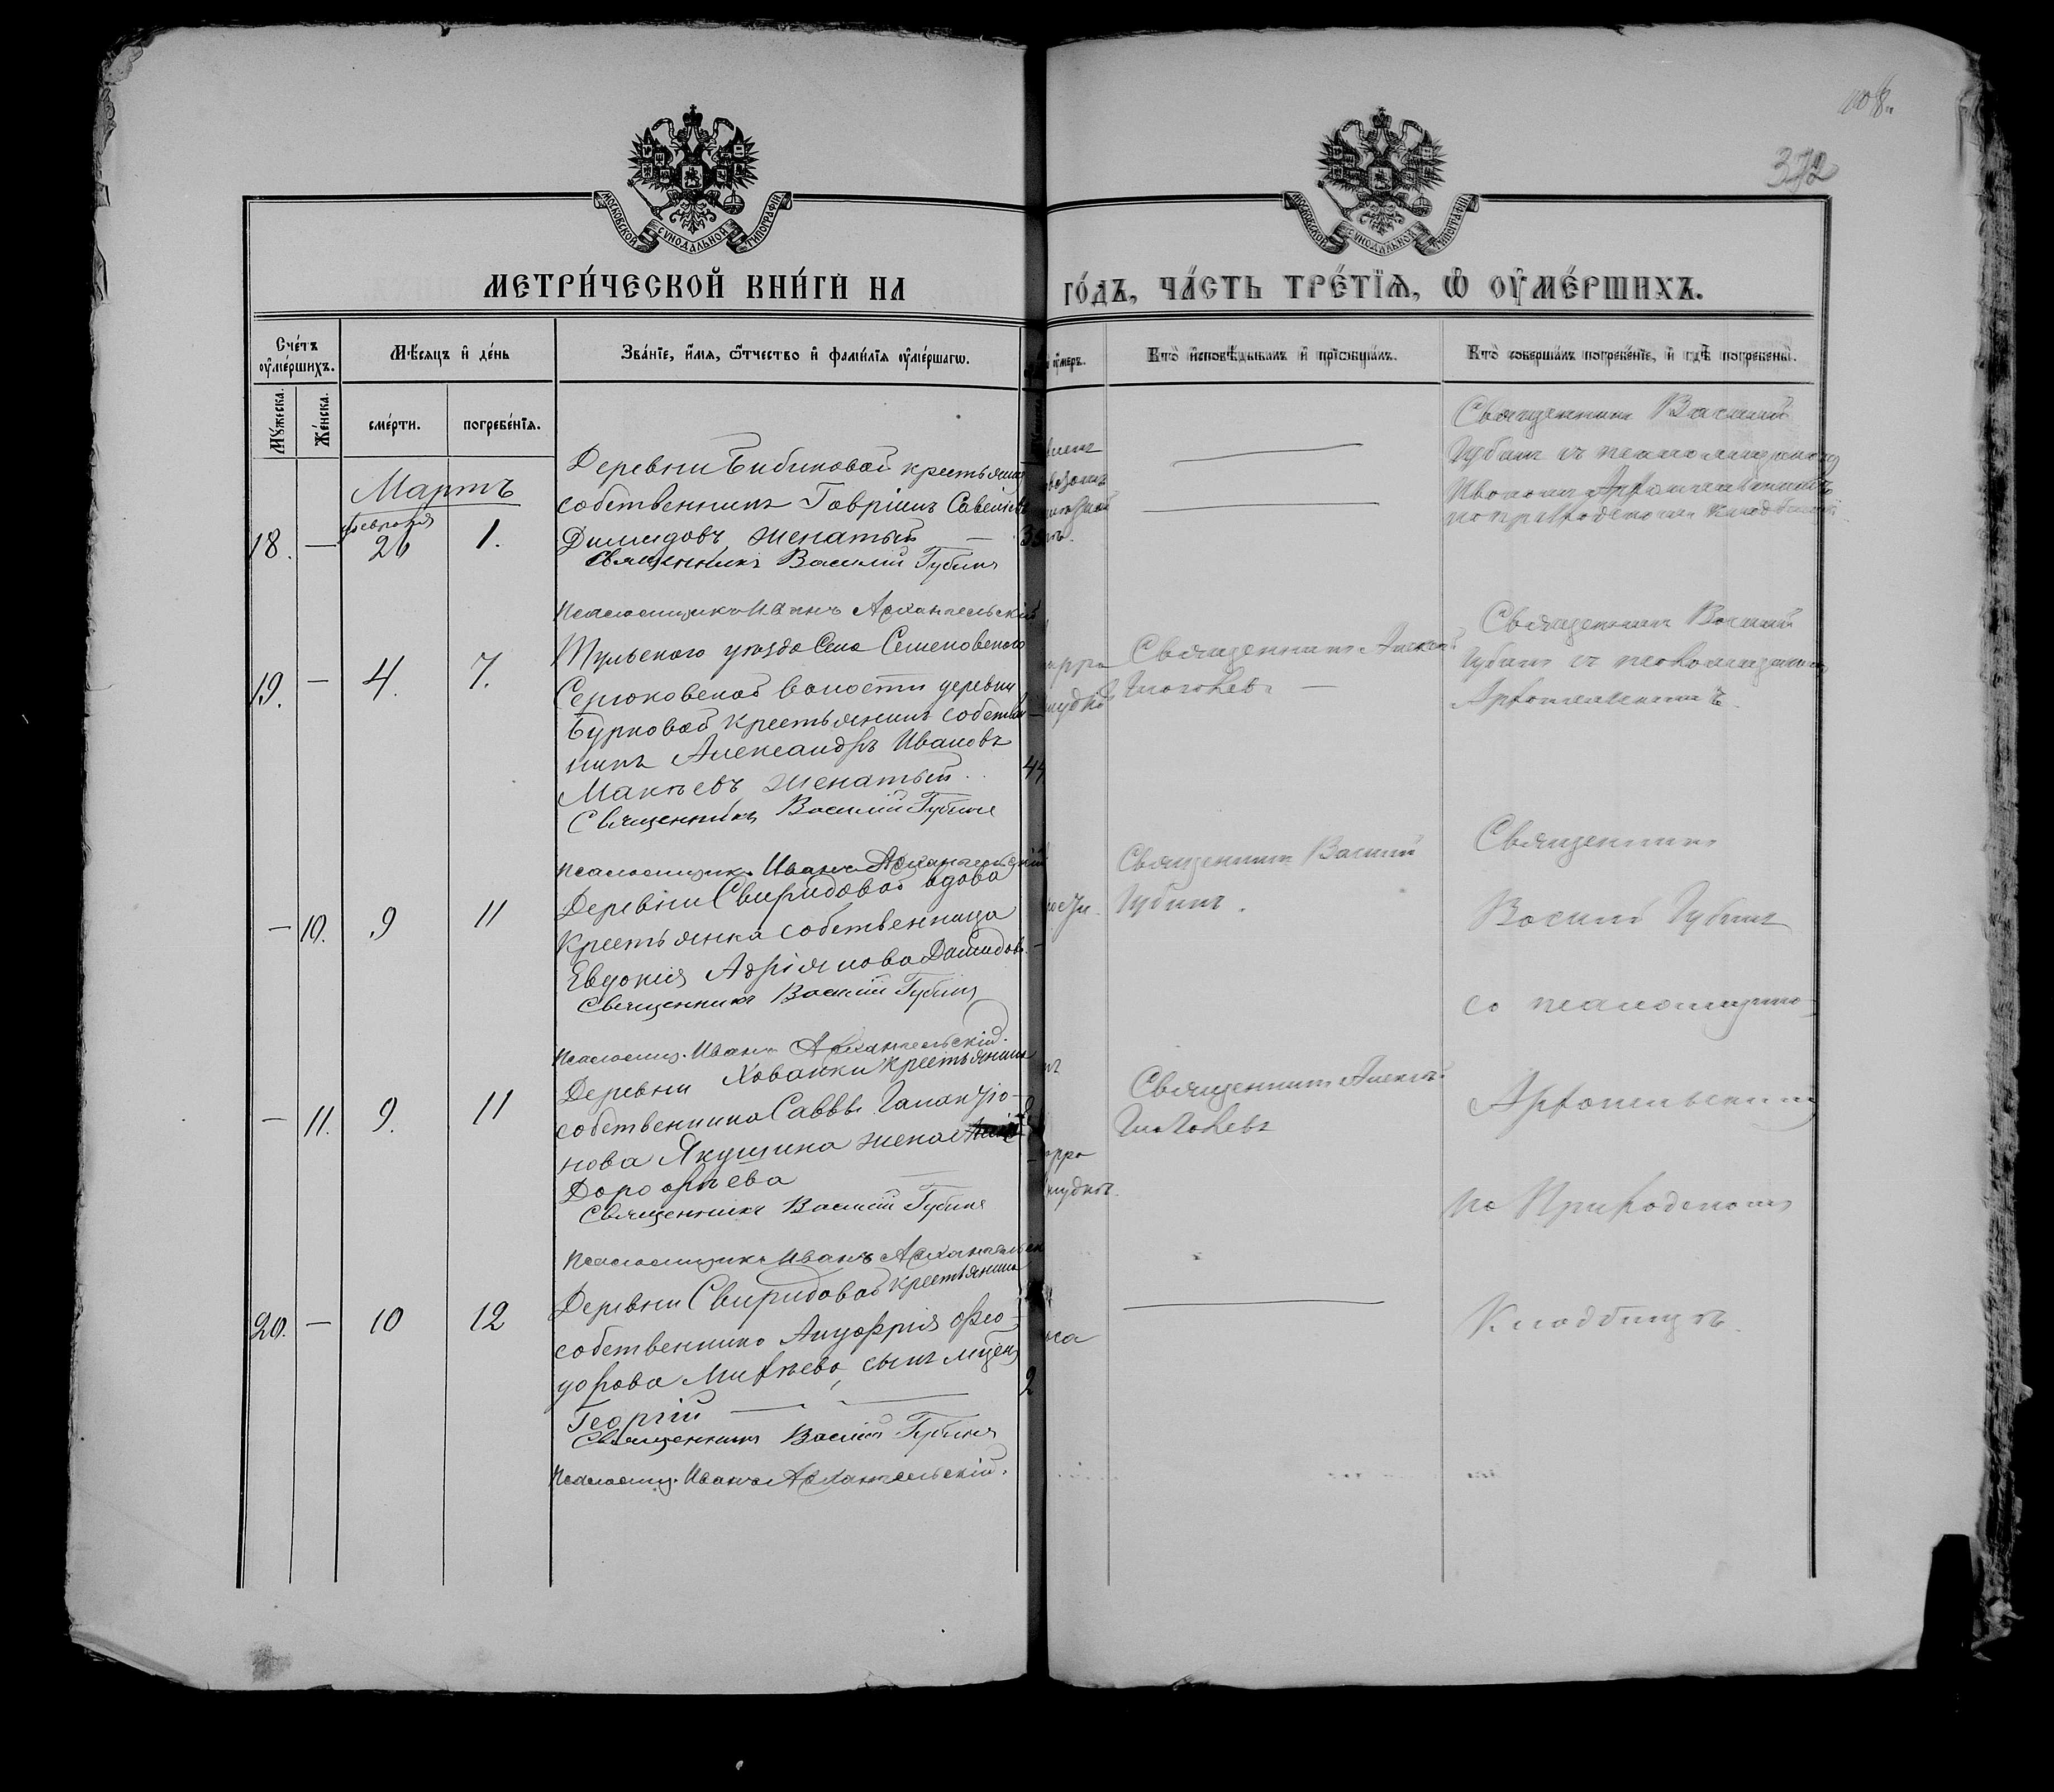 108.
372
МОСКОВСКОЙ СѴНОДАЛЬНОЙ ТИПОГРАФІИ
МОСКОВСКОЙ СѴНОДАЛЬНОЙ ТИПОГРАФІИ
МЕТРИ́ЧЕСКОЙ КНИ́ГИ НА
ГО́ДЪ, ЧА́СТЬ ТРЕ́ТІѦ, Ѡ҆ ОУ҆МЕ́РШИХЪ.
Сче́тъ оу҆ме́ршихъ.
Мѣ́сяцъ и҆ де́нь
Зва́нїе, и҆́мѧ, ѻ҆́тчество и҆ фами́лїѧ оу҆ме́ршагѡ.
оу҆́меръ.
Кто̀ и҆сповѣ́дывалъ и҆ прїѡбща́лъ.
Кто̀ соверша́лъ погребе́нїе, и҆ гдѣ̀ погребены̀.
Му́жеска.
Же́нска.
сме́рти.
погребе́нїѧ.
Мартъ
февраля
18. — 26 1.
Деревни Бибиковой крестьянин
собственникъ Гавріилъ Савельевъ
Димидовъ женатый — 35
Священникъ Василій Губинъ
Псаломщикъ Иванъ Архангельскій
Священникъ Василій
Губинъ съ псаломщикомъ
Иваномъ Архангельскимъ
на приходскомъ кладбищѣ
19. — 4. 7.
Тульскаго уѣзда Села Семеновскаго
волости деревни
Бурковой крестьянинъ собствен
никъ Александръ Ивановъ
Макѣевъ женатый 44
Священникъ Василій Губинъ
Псаломщикъ Иванъ Архангельскій
Священникъ Алексѣй
Глаголевъ —
Священникъ Василій
Губинъ съ псаломщикомъ
Архангельскимъ
— 10. 9 11
Деревни Свиридовой вдова
крестьянка собственница
Евдокія Адріянова Демидов
Священникъ Василій Губинъ
Псаломщ. Иванъ Архангельскій.
Священникъ Василій
Губинъ.
Священникъ
Василій Губинъ
со псаломщико
Архангельскимъ
на Приходскомъ
Кладбищѣ
— 11. 9. 11
Деревни Хованки крестьянина
собственника Саввы Галактіо
нова Якушина жена
Дорофѣева
Священникъ Василій Губинъ
Псаломщикъ Иванъ Архангельск
Священникъ Алексѣй
Глаголевъ
20. — 10 12
Деревни Свиридовой крестьянина
собственника Ануфрія Фео
дорова Михѣева, сынъ младен
Георгій — 2
Священникъ Василій Губинъ
Псаломщ. Иванъ Архангельскій.